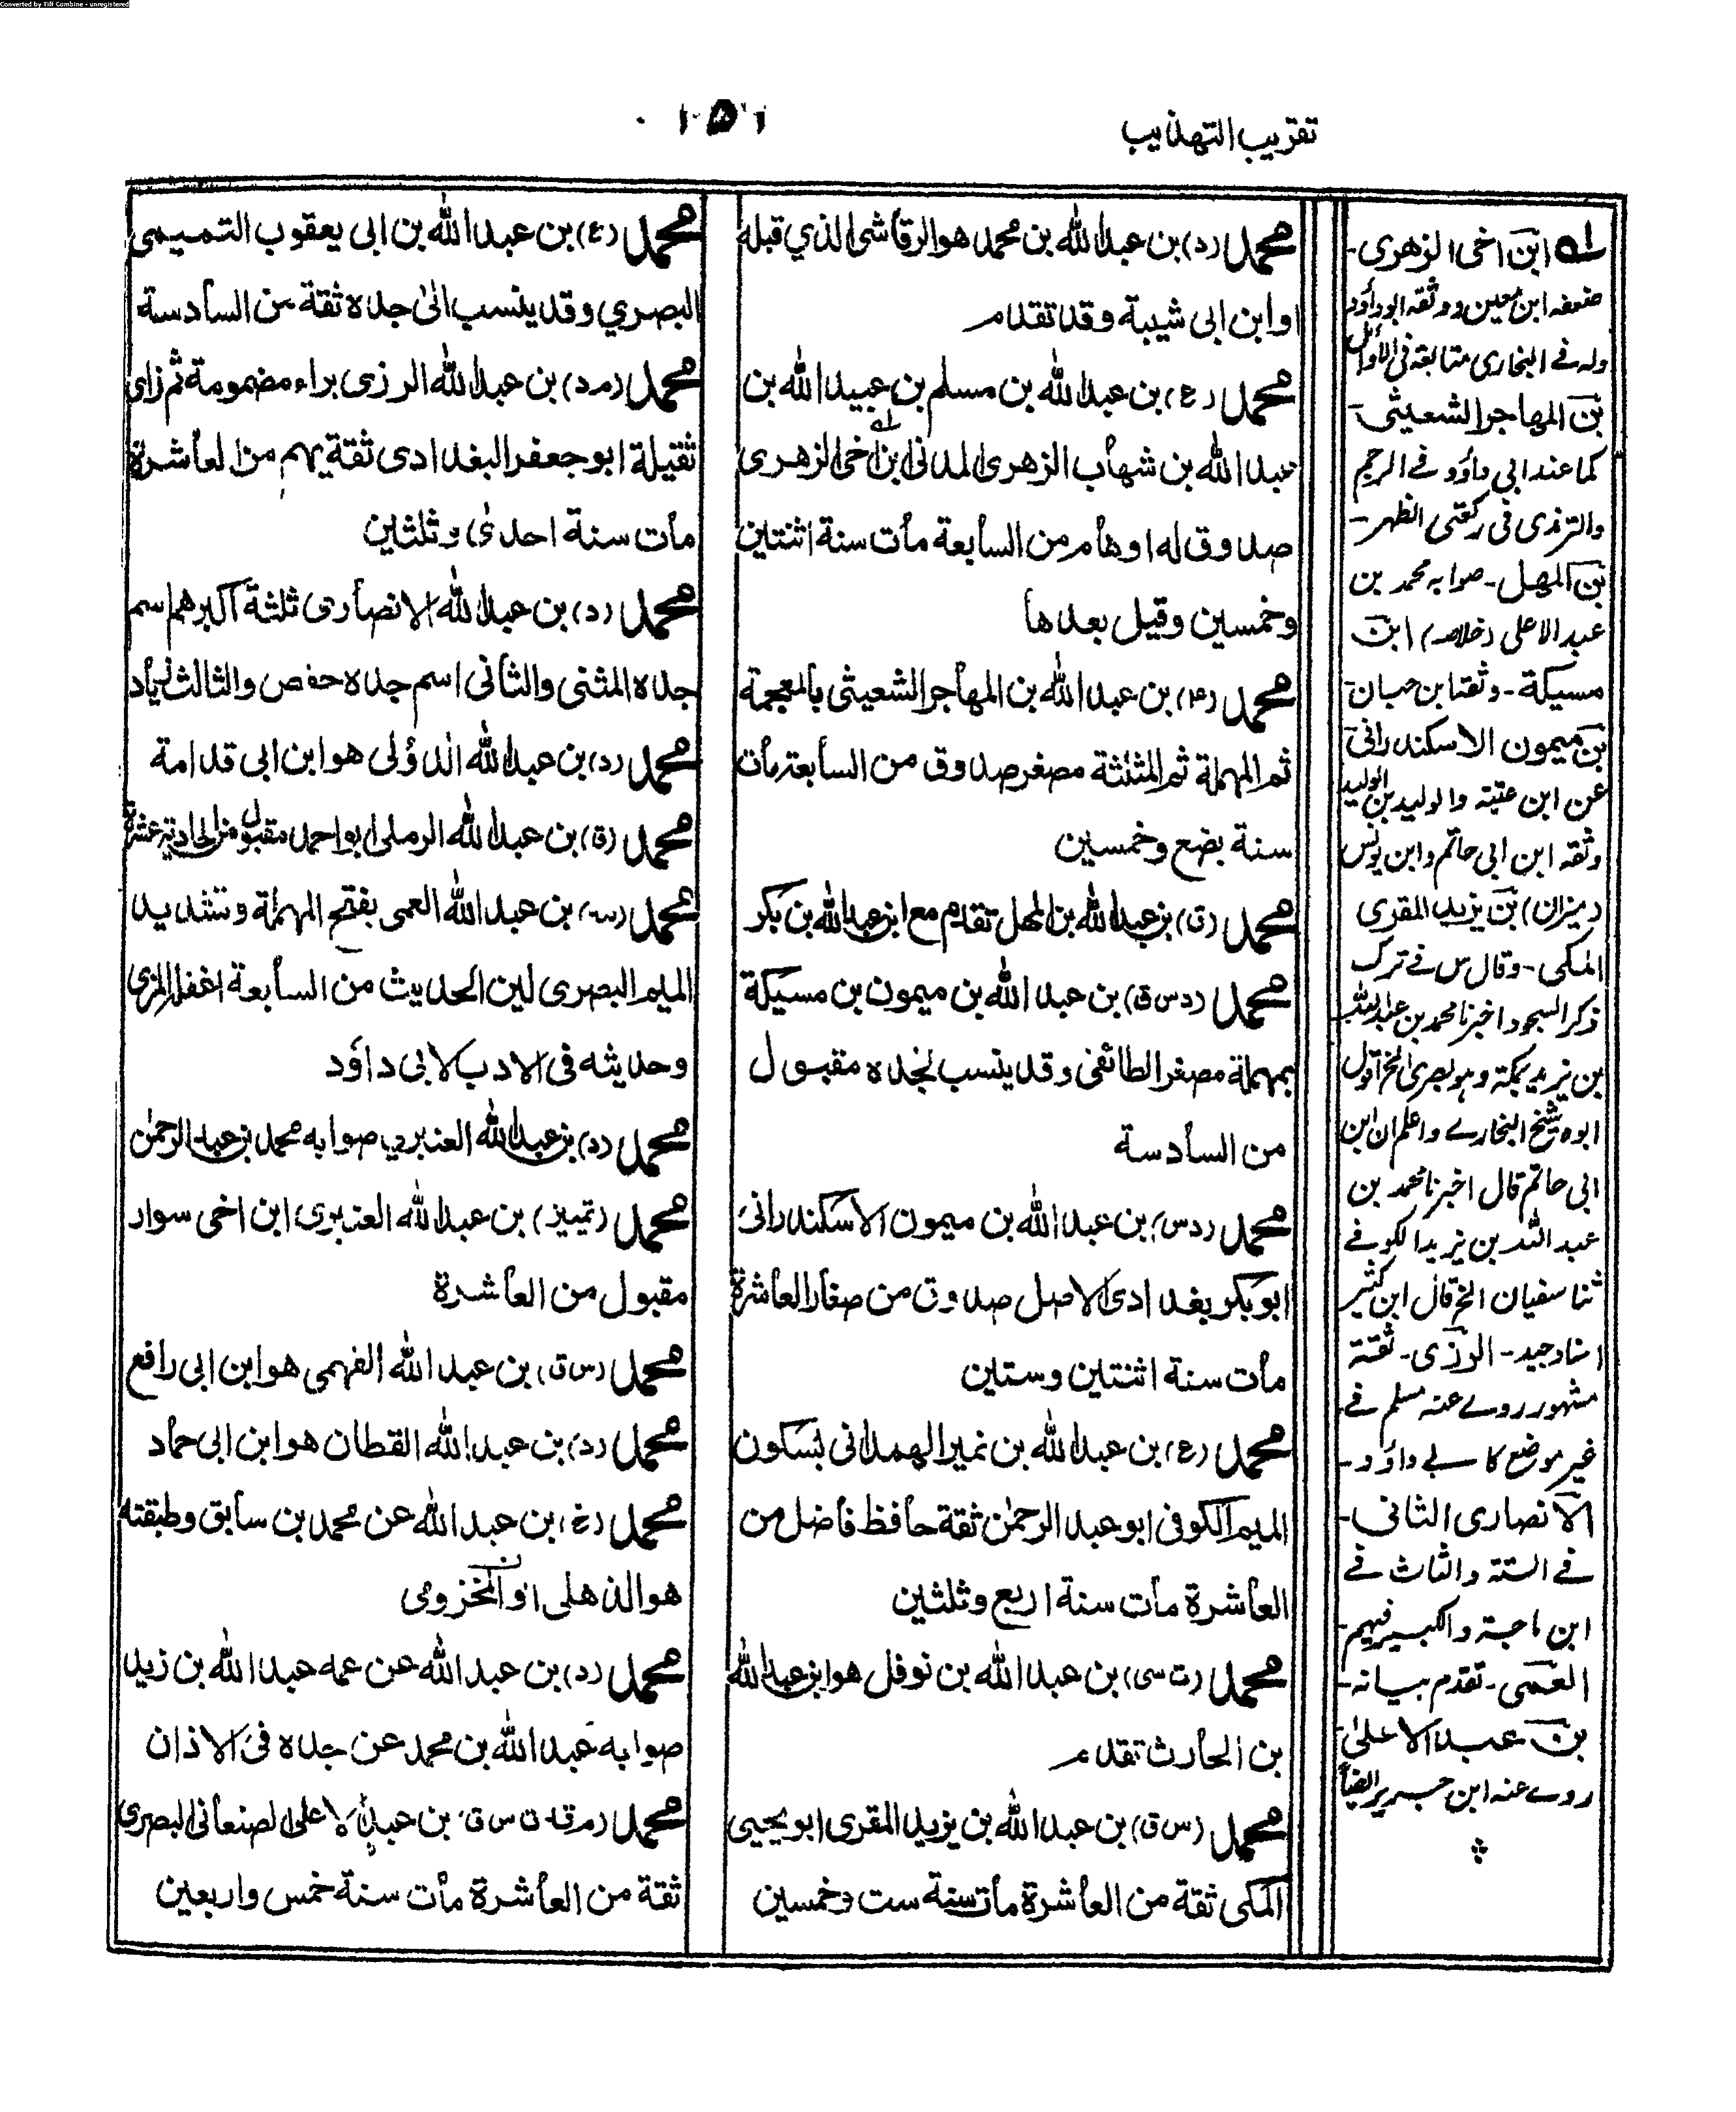 Converted by Tiff Combine - unregistered
تقريب التهذيب
محمد (د) بن عبد الله بن محمد هو الرقاشى الذي قبله
او ابن ابى شيبة وقد تقدم
محمد (ع) بن عبد الله بن مسلم بن عبيد الله بن
عبد الله بن شهاب الزهرى المدنى ابن اخى الزهرى
صدوق له اوهام من السابعة مات سنة اثنتين
وخمسين وقيل بعدها
محمد (٤) بن عبد الله بن المهاجر الشعيثى بالمعجمة
ثم المهملة ثم المثلثة مصغر صدوق من السابعة مات
سنة بضع وخمسين
محمد (ق) بن عبد الله بن المهل تقدم مع ابن عبد الله بن بكر
محمد (د س ق) بن عبد الله بن ميمون بن مسيكة
بمهملة مصغر الطائفى وقد ينسب لجده مقبول
من السادسة
محمد (د س) بن عبد الله بن ميمون الاسكندرانى
ابو بكر بغدادى الاصل صدوق من صغار العاشرة
مات سنة اثنتين وستين
محمد (ع) بن عبد الله بن نمير الهمدانى بسكون
الميم الكوفى ابو عبد الرحمٰن ثقة حافظ فاضل من
العاشرة مات سنة اربع وثلثين
محمد (ت سى) بن عبد الله بن نوفل هو ابن عبد الله
بن الحارث تقدم
محمد (س ق) بن عبد الله بن يزيد المقرى ابو يحيى
المكى ثقة من العاشرة مات سنة ست وخمسين
محمد (ع) بن عبد الله بن ابى يعقوب التميمى
البصري وقد ينسب الىٰ جده ثقة من السادسة
محمد (م د) بن عبد الله الرزى براء مضمومة ثم زاى
ثقيلة ابو جعفر البغدادى ثقة يهم من العاشرة
مات سنة احدىٰ وثلثين
محمد (د) بن عبد الله الانصارى ثلثة اكبرهم اسم
جده المثنى والثانى اسم جده حفص والثالث زياد
محمد (د) بن عبد الله الدؤلى هو ابن ابى قدامة
محمد (ق) بن عبد الله الرملى ابو احمد مقبول من الحادية عشرة
محمد (س) بن عبد الله العمى بفتح المهملة وتشديد
الميم البصرى لين الحديث من السابعة اغفله المزى
وحديثه فى الادب لابى داؤد
محمد (د) بن عبد الله العنبري صوابه محمد بن عبد الرحمٰن
محمد (تمييز) بن عبد الله العنبرى ابن اخى سوار
مقبول من العاشرة
محمد (س ق) بن عبد الله الفهمى هو ابن ابى رافع
محمد (د) بن عبد الله القطان هو ابن ابى حماد
محمد (خ) بن عبد الله عن محمد بن سابق وطبقته
هو الذهلى او المخزومى
محمد (د) بن عبد الله عن عمه عبد الله بن زيد
صوابه عبد الله بن محمد عن جده فى الاذان
محمد (م قد ت س ق) بن عبد الاعلى الصنعانى البصرى
ثقة من العاشرة مات سنة خمس واربعين
له ابن اخى الزهرى-
ضعفه ابن معين ووثقه ابو داؤد
وله فے البخارى متابعة فى الاوائل
بن المهاجر الشعيثى-
كما عند ابي داؤد فے الرجم
والترمذى فى ركعتى الظهر-
بن المهل- صوابه محمد بن
عبد الاعلى (خلاصه) ابن
مسيكة- وثقه ابن حبان-
بن ميمون الاسكندرانى
عن ابن عيينة والوليد بن الوليد
وثقه ابن ابى حاتم وابن يونس
(ميزان) بن يزيد المقرى
المكى- وقال س فے ترك
ذكر السجود اخبرنا محمد بن عبد الله
بن يزيد بمكة وهو بصرى الخ اقول
ابوه شيخ البخارے واعلم ان ابن
ابى حاتم قال اخبرنا محمد بن
عبد الله بن يزيد الكوفے
ثنا سفيان الخ قال ابن كثير
اسناد جيد- الرزى- ثقة
مشهور روے عنه مسلم فے
غير موضع كابے داؤد-
الانصارى الثانى-
فے الستة والثالث فے
ابن ماجة والكبير فيهم-
العمى- تقدم بيانه-
بن عبد الاعلىٰ
روے عنه ابن جرير ايضا